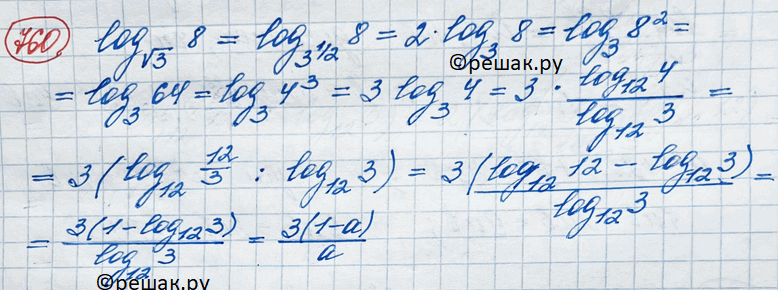 760. log_{√3} 8 = log_{3^{1/2}} 8 = 2 · log_3 8 = log_3 8^2 =
©решак.ру
= log_3 64 = log_3 4^3 = 3 log_3 4 = 3 · \frac{log_{12} 4}{log_{12} 3} =
= 3 (log_{12} \frac{12}{3} : log_{12} 3) = \frac{3 (log_{12} 12 - log_{12} 3)}{log_{12} 3} =
= \frac{3(1 - log_{12} 3)}{log_{12} 3} = \frac{3(1-a)}{a}
©решак.ру